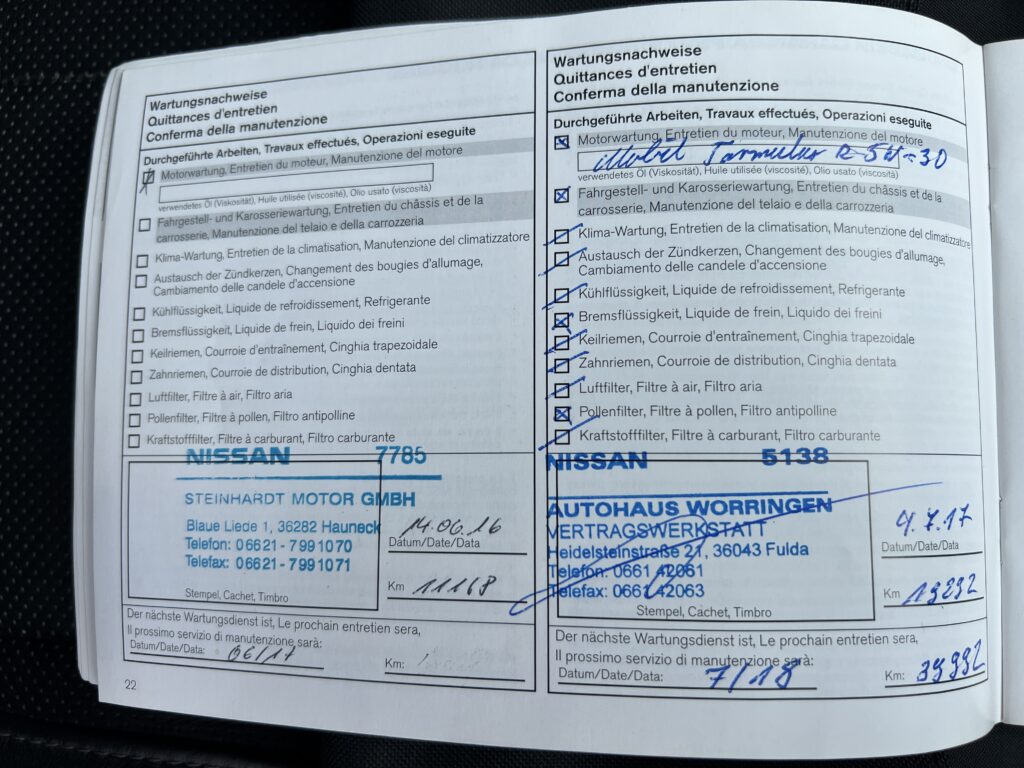 Wartungsnachweise
Quittances d'entretien
Conferma della manutenzione
Durchgeführte Arbeiten, Travaux effectués, Operazioni eseguite
Motorwartung, Entretien du moteur, Manutenzione del motore
verwendetes Öl (Viskosität), Huile utilisée (viscosité), Olio usato (viscosità)
Fahrgestell- und Karosseriewartung, Entretien du châssis et de la
carrosserie, Manutenzione del telaio e della carrozzeria
Klima-Wartung, Entretien de la climatisation, Manutenzione del climatizzatore
Austausch der Zündkerzen, Changement des bougies d'allumage,
Cambiamento delle candele d'accensione
Kühlflüssigkeit, Liquide de refroidissement, Refrigerante
Bremsflüssigkeit, Liquide de frein, Liquido dei freini
Keilriemen, Courroie d'entraînement, Cinghia trapezoidale
Zahnriemen, Courroie de distribution, Cinghia dentata
Luftfilter, Filtre à air, Filtro aria
Pollenfilter, Filtre à pollen, Filtro antipolline
Kraftstofffilter, Filtre à carburant, Filtro carburante
NISSAN 7785
STEINHARDT MOTOR GMBH
Blaue Liede 1, 36282 Hauneck
Telefon: 06621-7991070
Telefax: 06621-7991071
Stempel, Cachet, Timbro
14.06.16
Datum/Date/Data
Km 11168
Der nächste Wartungsdienst ist, Le prochain entretien sera,
Il prossimo servizio di manutenzione sarà:
Datum/Date/Data: 06/17
Km:
22
Wartungsnachweise
Quittances d'entretien
Conferma della manutenzione
Durchgeführte Arbeiten, Travaux effectués, Operazioni eseguite
Motorwartung, Entretien du moteur, Manutenzione del motore
Mobil 5W-30
verwendetes Öl (Viskosität), Huile utilisée (viscosité), Olio usato (viscosità)
Fahrgestell- und Karosseriewartung, Entretien du châssis et de la
carrosserie, Manutenzione del telaio e della carrozzeria
Klima-Wartung, Entretien de la climatisation, Manutenzione del climatizzatore
Austausch der Zündkerzen, Changement des bougies d'allumage,
Cambiamento delle candele d'accensione
Kühlflüssigkeit, Liquide de refroidissement, Refrigerante
Bremsflüssigkeit, Liquide de frein, Liquido dei freini
Keilriemen, Courroie d'entraînement, Cinghia trapezoidale
Zahnriemen, Courroie de distribution, Cinghia dentata
Luftfilter, Filtre à air, Filtro aria
Pollenfilter, Filtre à pollen, Filtro antipolline
Kraftstofffilter, Filtre à carburant, Filtro carburante
NISSAN 5138
AUTOHAUS WORRINGEN
VERTRAGSWERKSTATT
Heidelsteinstraße 21, 36043 Fulda
Telefon: 0661 42061
Telefax: 0661 42063
Stempel, Cachet, Timbro
4.7.17
Datum/Date/Data
Km 19292
Der nächste Wartungsdienst ist, Le prochain entretien sera,
Il prossimo servizio di manutenzione sarà:
Datum/Date/Data: 7/18
Km: 39992